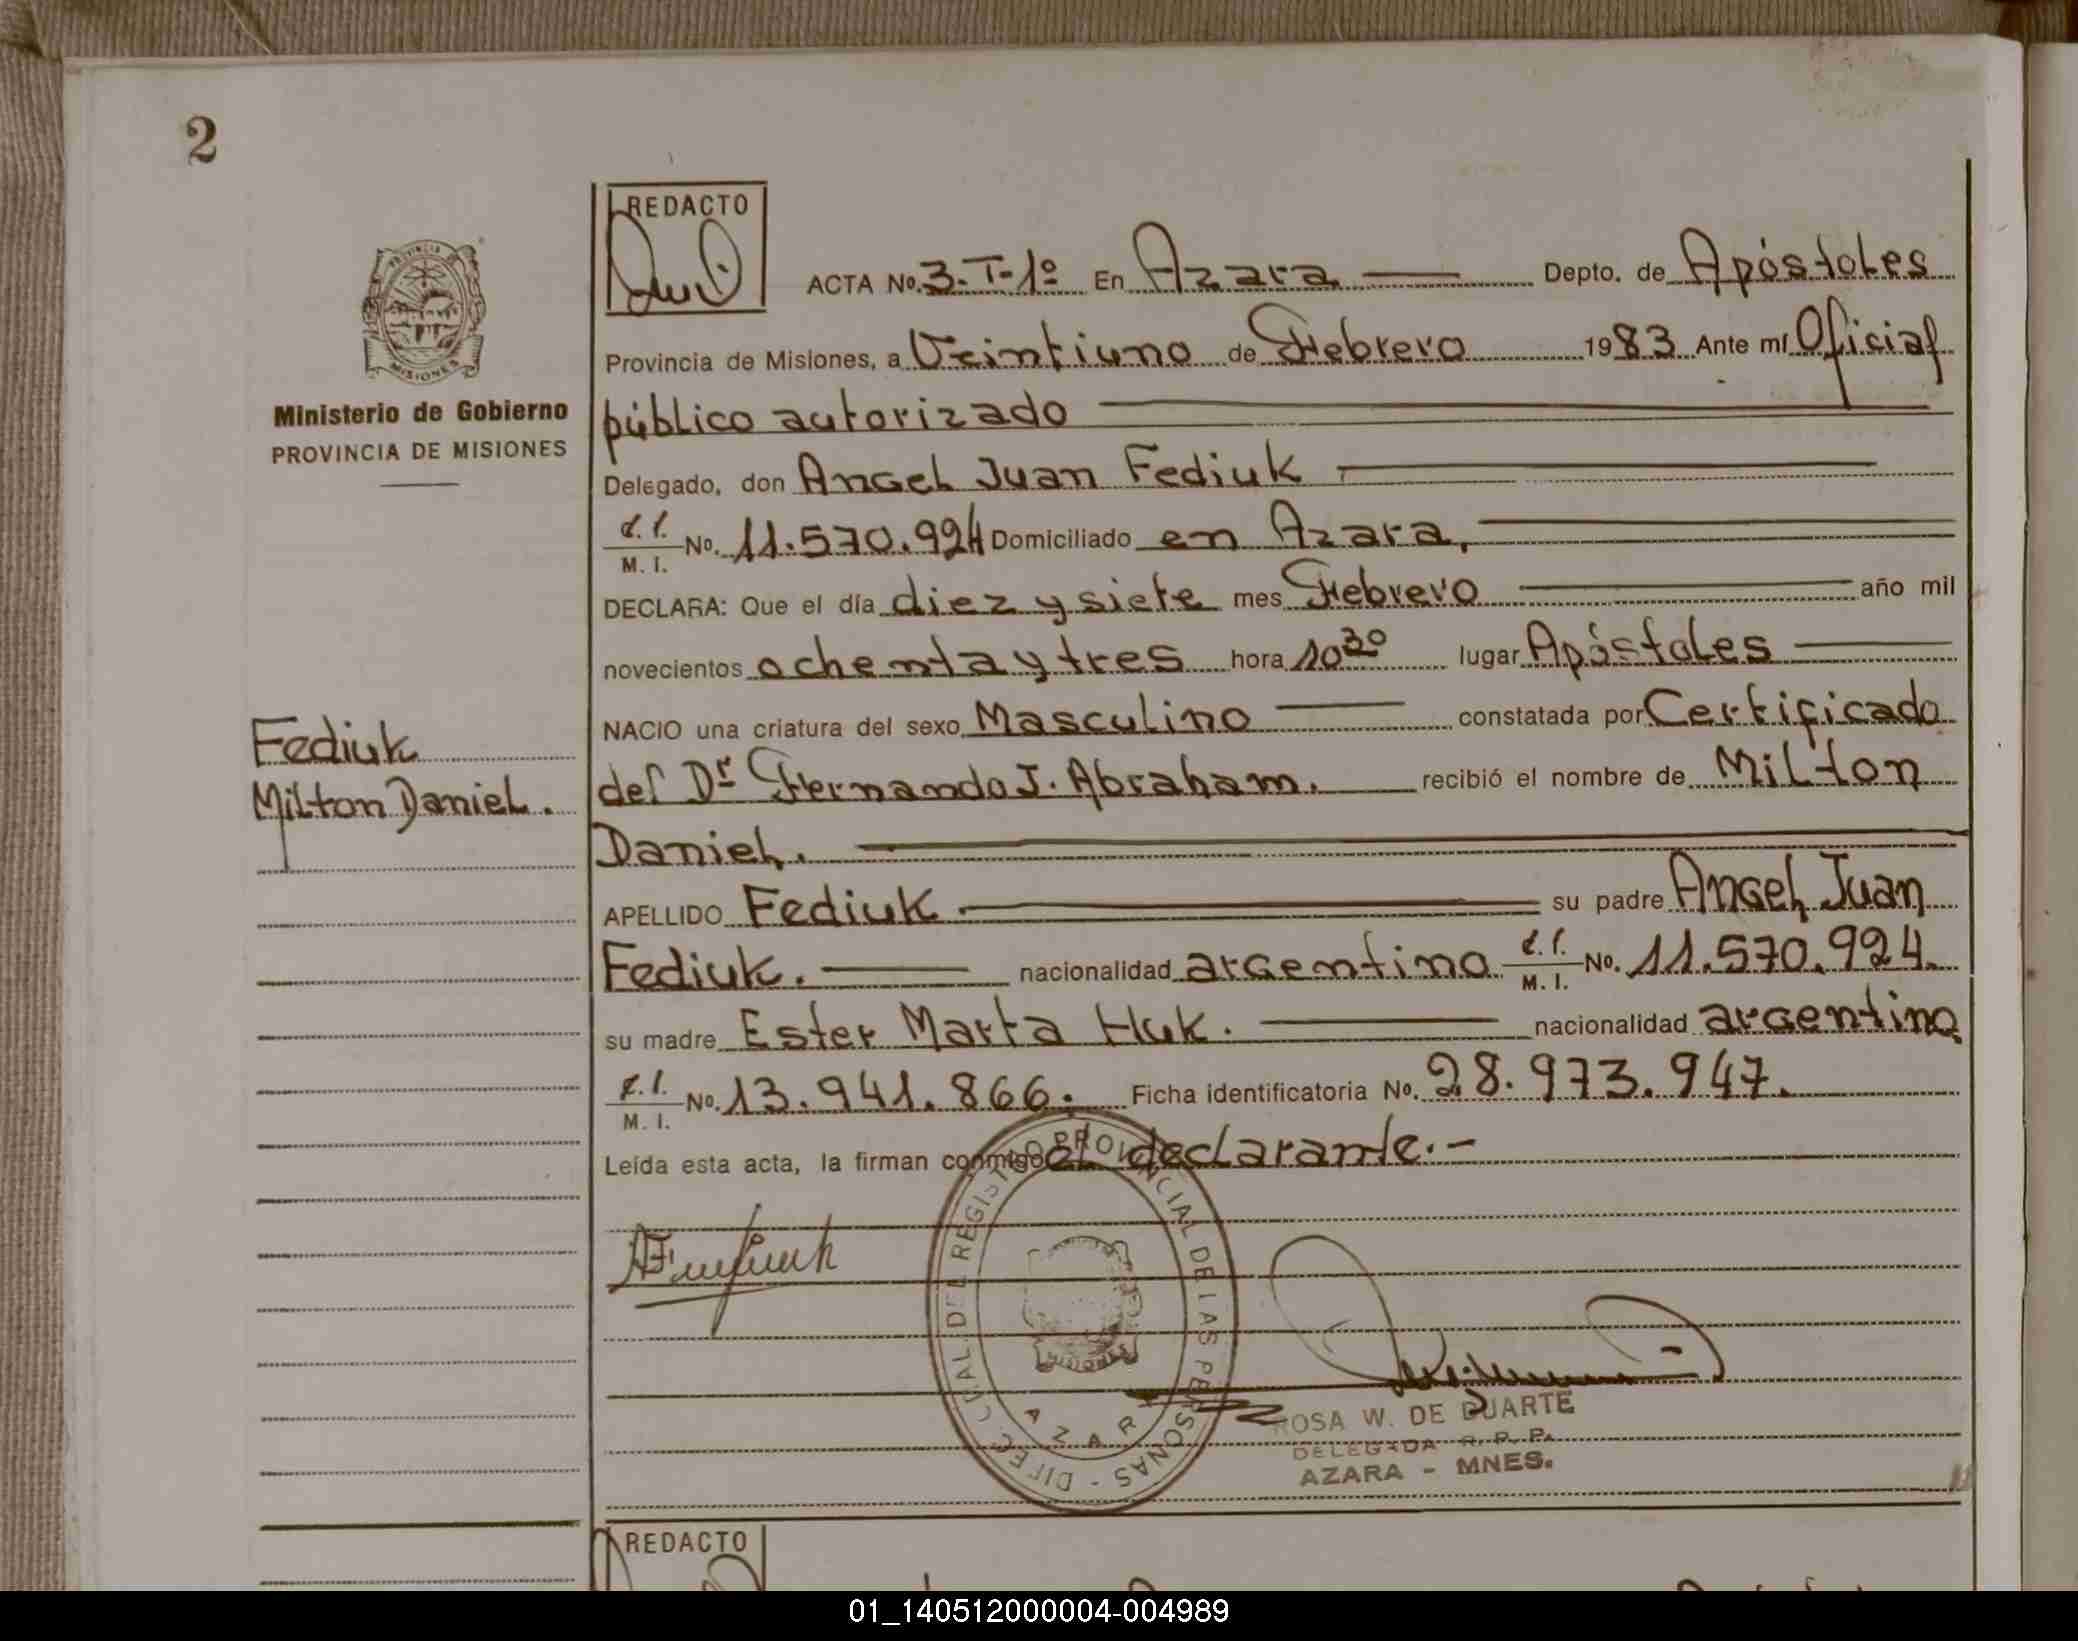 2
REDACTO
ACTA No. 3-T-1º En Azara Depto. de Apóstoles
Provincia de Misiones, a Veintiuno de Febrero 1983 Ante mí Oficial
público autorizado
Delegado, don Angel Juan Fediuk
C.I. No. 11.570.924 Domiciliado en Azara,
M. I.
DECLARA: Que el día diez y siete mes Febrero año mil
novecientos ochenta y tres hora 10 30 lugar Apóstoles
NACIO una criatura del sexo Masculino constatada por Certificado
del Dr Fernando J. Abraham. recibió el nombre de Milton
Daniel.
APELLIDO Fediuk su padre Angel Juan
Fediuk. nacionalidad argentino C.I. No. 11.570.924.
M. I.
su madre Ester Marta Huk. nacionalidad argentina
C.I. No. 13.941.866. Ficha identificatoria No. 28.973.947.
M. I.
Leída esta acta, la firman conmigo el declarante.-
PROVINCIA
MISIONES
Ministerio de Gobierno
PROVINCIA DE MISIONES
Fediuk
Milton Daniel.
REGISTRO PROVINCIAL DE LAS PERSONAS -
MISIONES
AZARA
ROSA W. DE DUARTE
DELEGADA R. P. P.
AZARA - MNES.
REDACTO
01_140512000004-004989